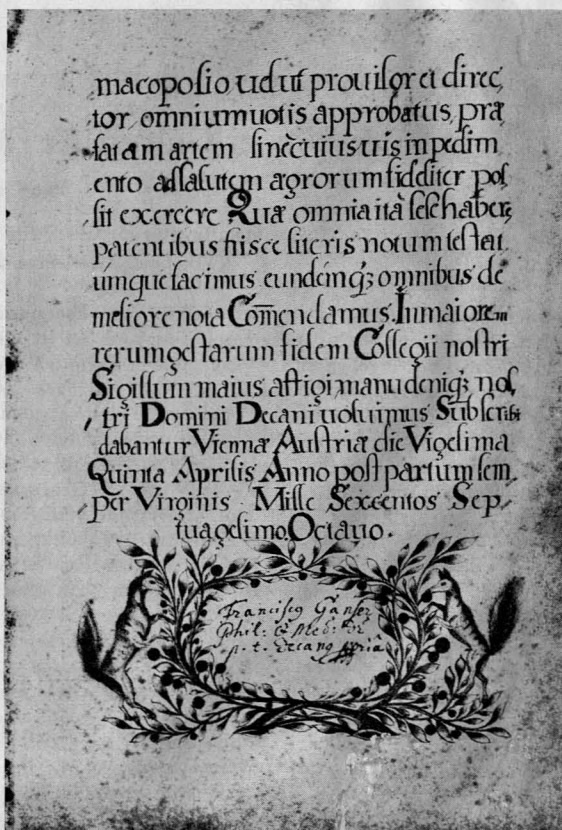 macopolio uduū provisor et direc,
tor, omnium uotis approbatus, præ
fatam artem sinè cuiusuis inpedim
ento ad salutem ægrorum fideliter pos,
sit exercere Quæ omnia ità sese habere,
patentibus hisce literis notum testat
umque facimus eundemq; omnibus de
meliore nota Com̄endamus. In maiorem
rerum gestarum fidem Collegii nostri
Sigillum maius affigi, manu deniq; nos,
tri Domini Decani uoluimus Subscribi
dabantur Viennæ Austriæ die Vigesima
Quinta Aprilis Anno post partum sem,
per Virginis Mille Sexcentos Sep,
tuagesimo Octavo.
Franciscq Ganser
Phil: & Med: Dr
p. t. Decanq